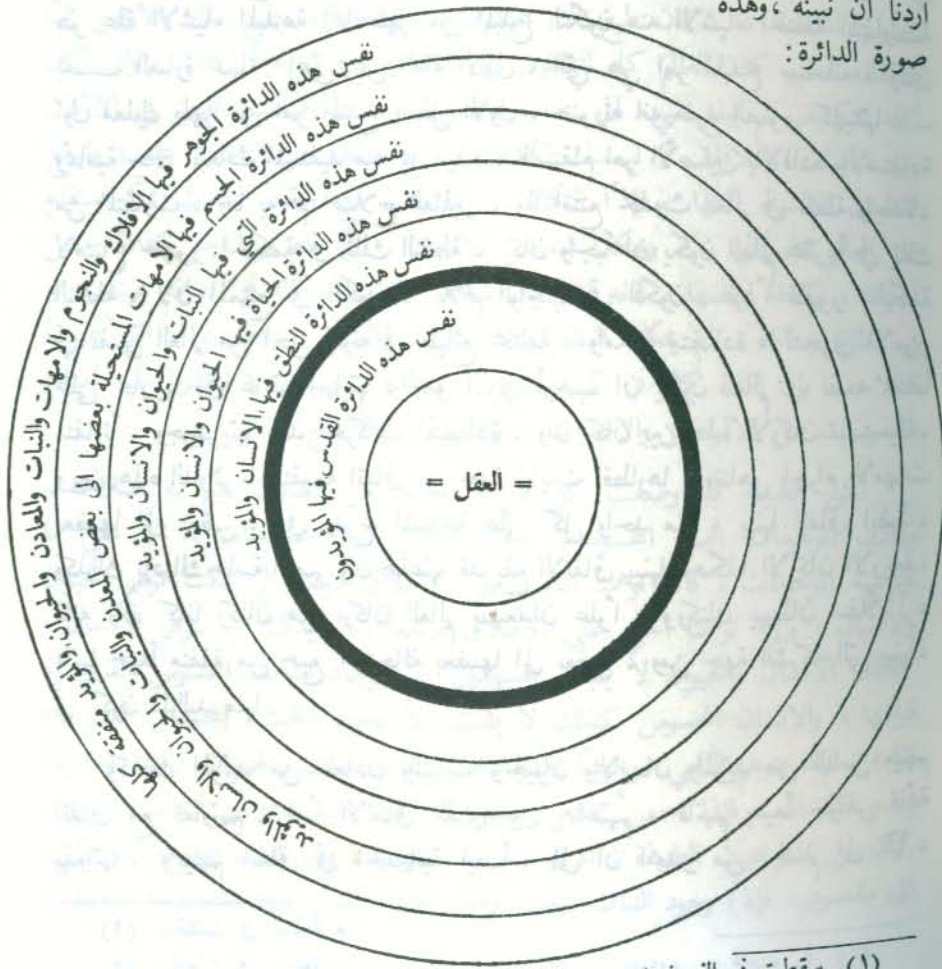 اردنا أن نبينه ،وهذه
صورة الدائرة:
نفس هذه الدائرة الجوهر فيها الأفلاك والنجوم والامهات والنبات والمعادن والحيوان والمؤيد متفقة كلها
نفس هذه الدائرة الجسم فيها الامهات المستحيلة بعضها الى بعض المعادن والنبات والحيوان والانسان والمؤيد
نفس هذه الدائرة التي فيها النبات والحيوان والانسان والمؤيد
نفس هذه الدائرة الحياة فيها الحيوان والانسان والمؤيد
نفس هذه الدائرة النطق فيها الانسان والمؤيد
نفس هذه الدائرة القدس فيها المؤيدون
= العقل =
(١)